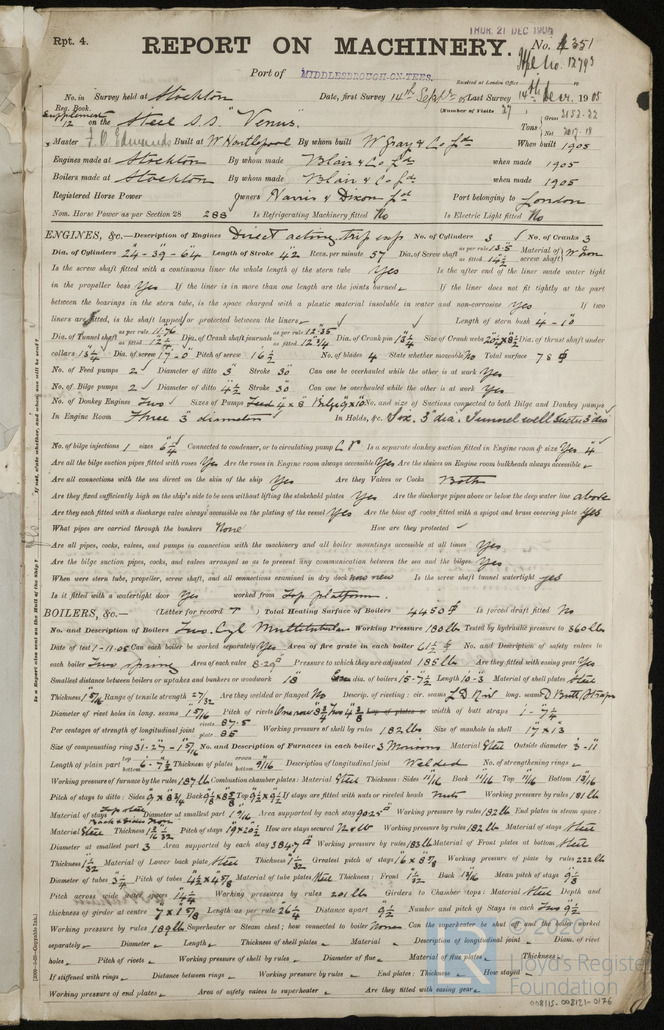 Rpt. 4.
THUR. 21 DEC 1905
REPORT ON MACHINERY. No. 4351
Spl No. 12793
Port of MIDDLESBROUGH-ON-TEES.
Received at London Office
No. in Survey held at Stockton Date, first Survey 14th Septr Last Survey 14th Decr. 1905
Reg. Book. (Number of Visits 27
Supplement 12 on the Steel S.S. "Venus" Tons Gross 3152.22 Net 2017.18
Master F. O. Edmunds Built at W. Hartlepool By whom built W Gray & Co Ld When built 1905
Engines made at Stockton By whom made Blair & Co Ld when made 1905
Boilers made at Stockton By whom made Blair & Co Ld when made 1905
Registered Horse Power Owners Harris & Dixon Ld Port belonging to London
Nom. Horse Power as per Section 28 288 Is Refrigerating Machinery fitted No Is Electric Light fitted No
ENGINES, &c.—Description of Engines Direct acting trip exp No. of Cylinders 3 No. of Cranks 3
Dia. of Cylinders 24-39-64 Length of Stroke 42 Revs. per minute 57 Dia. of Screw shaft as per rule 13.5 as fitted 14½ Material of screw shaft W Iron
Is the screw shaft fitted with a continuous liner the whole length of the stern tube Yes Is the after end of the liner made water tight
in the propeller boss Yes If the liner is in more than one length are the joints burned If the liner does not fit tightly at the part
between the bearings in the stern tube, is the space charged with a plastic material insoluble in water and non-corrosive Yes If two
liners are fitted, is the shaft lapped or protected between the liners Length of stern bush 4-10
Dia. of Tunnel shaft as per rule 11.76 as fitted 12¼ Dia. of Crank shaft journals as per rule 12.35 as fitted 12¾ Dia. of Crank pin 13¼ Size of Crank webs Dia. of thrust shaft under
collars 13¼ Dia. of screw 17-0 Pitch of screw 16½ No. of blades 4 State whether moveable No Total surface 78
No. of Feed pumps 2 Diameter of ditto 3 Stroke 30 Can one be overhauled while the other is at work Yes
No. of Bilge pumps 2 Diameter of ditto 4½ Stroke 30 Can one be overhauled while the other is at work Yes
No. of Donkey Engines Two Sizes of Pumps Feed 4x8 Bilge 9x10 No. and size of Suctions connected to both Bilge and Donkey pumps
In Engine Room Three 3" diameter In Holds, &c. Six. 3" dia. Tunnel well suction 3" dia
No. of bilge injections 1 sizes 6¼ Connected to condenser, or to circulating pump C P Is a separate donkey suction fitted in Engine room & size Yes 4"
Are all the bilge suction pipes fitted with roses Yes Are the roses in Engine room always accessible Yes Are the sluices on Engine room bulkheads always accessible
Are all connections with the sea direct on the skin of the ship Yes Are they Valves or Cocks Both
Are they fixed sufficiently high on the ship's side to be seen without lifting the stokehold plates Yes Are the discharge pipes above or below the deep water line above
Are they each fitted with a discharge valve always accessible on the plating of the vessel Yes Are the blow off cocks fitted with a spigot and brass covering plate Yes
What pipes are carried through the bunkers None How are they protected
Are all pipes, cocks, valves, and pumps in connection with the machinery and all boiler mountings accessible at all times Yes
Are the bilge suction pipes, cocks, and valves arranged so as to prevent any communication between the sea and the bilges Yes
When were stern tube, propeller, screw shaft, and all connections examined in dry dock now new Is the screw shaft tunnel watertight yes
Is it fitted with a watertight door Yes worked from Top platform
BOILERS, &c.— (Letter for record T ) Total Heating Surface of Boilers 4450 Is forced draft fitted No
No. and Description of Boilers Two. Cyl Multitubular Working Pressure 180 lb Tested by hydraulic pressure to 360 lbs
Date of test 1-11-05 Can each boiler be worked separately Yes Area of fire grate in each boiler 61½ No. and Description of safety valves to
each boiler Two spring Area of each valve 8.29 Pressure to which they are adjusted 185 lb Are they fitted with easing gear Yes
Smallest distance between boilers or uptakes and bunkers or woodwork 18 dia. of boilers 15-7½ Length 10-3 Material of shell plates Steel
Thickness 1 5/16 Range of tensile strength 27/32 Are they welded or flanged No Descrip. of riveting: cir. seams long. seams D Butt Straps
Diameter of rivet holes in long. seams 1 5/16 Pitch of rivets Lap of plates or width of butt straps
Per centages of strength of longitudinal joint rivets 87.5 plate 85 Working pressure of shell by rules 182 lb Size of manhole in shell 17x13
Size of compensating ring 31-27-1 5/16 No. and Description of Furnaces in each boiler 3 Morisons Material Steel Outside diameter 3-11
Length of plain part top bottom 6-7½ Thickness of plates crown bottom 9/16 Description of longitudinal joint Welded No. of strengthening rings
Working pressure of furnace by the rules 187 lb Combustion chamber plates: Material Steel Thickness: Sides 11/16 Back 11/16 Top 11/16 Bottom 13/16
Pitch of stays to ditto: Sides 9x8¾ Back Top If stays are fitted with nuts or riveted heads Nuts Working pressure by rules 181 lb
Material of stays Diameter at smallest part Area supported by each stay Working pressure by rules 182 lb End plates in steam space:
Material Steel Thickness 1 1/32 Pitch of stays 19x20½ How are stays secured Working pressure by rules 182 lb Material of stays Steel
Diameter at smallest part 3 Area supported by each stay 384.7 Working pressure by rules 183 lb Material of Front plates at bottom Steel
Thickness 1 1/32 Material of Lower back plate Steel Thickness 1 1/32 Greatest pitch of stays 16x8⅝ Working pressure of plate by rules 222 lb
Diameter of tubes 3¼ Pitch of tubes 4½x4⅝ Material of tube plates Steel Thickness: Front 1 1/32 Back 13/16 Mean pitch of stays 9⅛
Pitch across wide water spaces 14¼ Working pressures by rules 201 lb Girders to Chamber tops: Material Steel Depth and
thickness of girder at centre 7x1⅝ Length as per rule 26¼ Distance apart 9½ Number and pitch of Stays in each Two 9½
Working pressure by rules 189 lb Superheater or Steam chest; how connected to boiler None Can the superheater be shut off and the boiler worked
separately Diameter Length Thickness of shell plates Material Description of longitudinal joint Diam. of rivet
holes Pitch of rivets Working pressure of shell by rules Diameter of flue Material of flue plates Thickness
If stiffened with rings Distance between rings Working pressure by rules End plates: Thickness How stayed
Working pressure of end plates Area of safety valves to superheater Are they fitted with easing gear
© 2020
Lloyd's Register
Foundation
008115-008121-0176